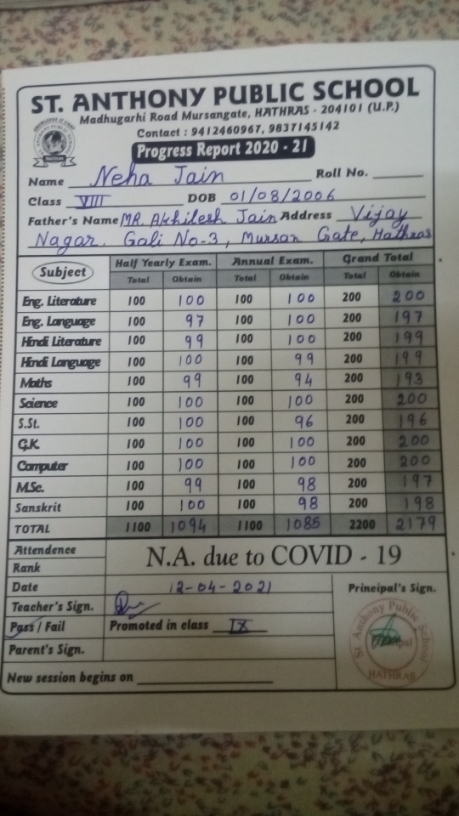 ST. ANTHONY PUBLIC SCHOOL
Madhugarhi Road Mursangate, HATHRAS - 204101 (U.P.)
Contact : 9412460967, 9837145142
Progress Report 2020 - 21
Name Neha Jain Roll No.
Class VIII DOB 01/08/2006
Father's Name MR. Akhilesh Jain Address Vijay
Nagar. Gali No-3, Mursan Gate, Hathras
Subject Half Yearly Exam. Annual Exam. Grand Total
Total Obtain Total Obtain Total Obtain
Eng. Literature 100 100 100 100 200 200
Eng. Language 100 97 100 100 200 197
Hindi Literature 100 99 100 100 200 199
Hindi Language 100 100 100 99 200 199
Maths 100 99 100 94 200 193
Science 100 100 100 100 200 200
S.St. 100 100 100 96 200 196
G.K. 100 100 100 100 200 200
Computer 100 100 100 100 200 200
M.Sc. 100 99 100 98 200 197
Sanskrit 100 100 100 98 200 198
TOTAL 1100 1094 1100 1085 2200 2179
Attendence
Rank
N.A. due to COVID - 19
Date 12-04-2021 Principal's Sign.
Teacher's Sign.
Pass / Fail Promoted in class IX
Parent's Sign.
New session begins on
St. Anthony Public School
HATHRAS